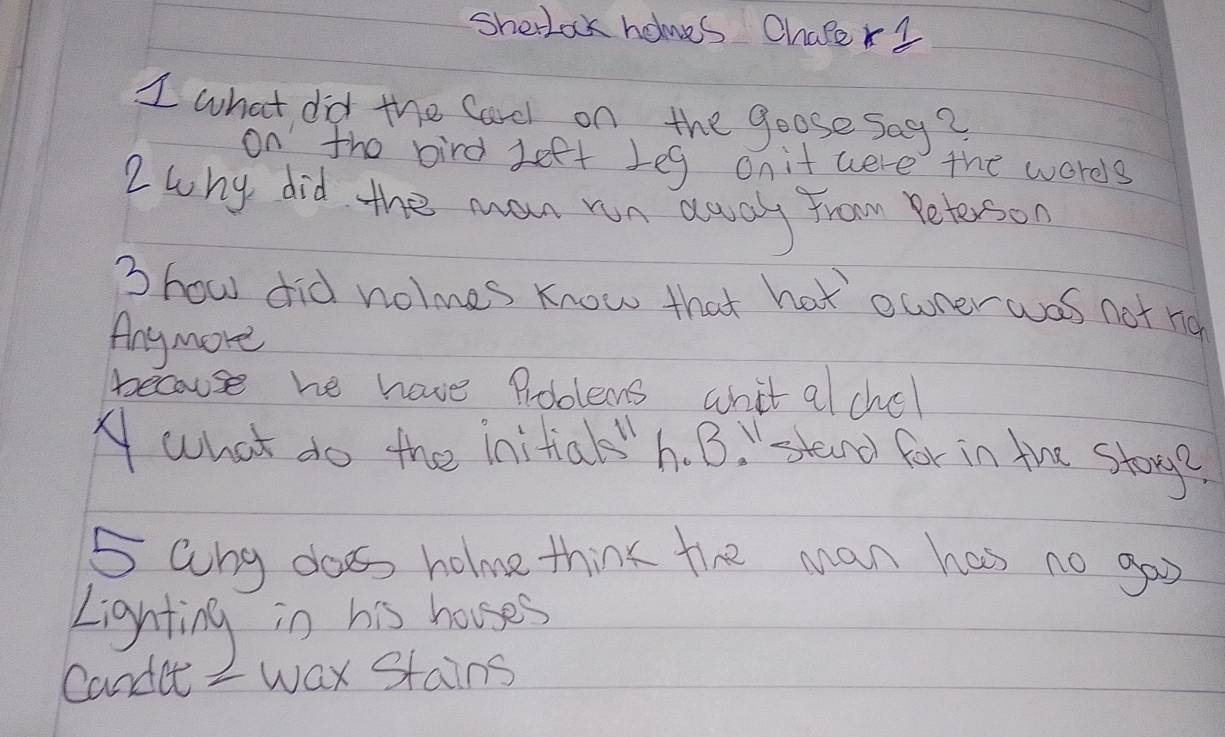 Sherlock holmes Chaper 1
1 what did the Card on the goose say?
on the bird Left Leg onit were the words
2 why did the man run away From Peterson
3 how did holmes know that hat owner was not rich
Anymore
because he have Problems whit alchol
4 what do the initials "h.B." stand for in the story?
5 why does holme think the man has no gas
Lighting in his houses
Candle = wax Stains